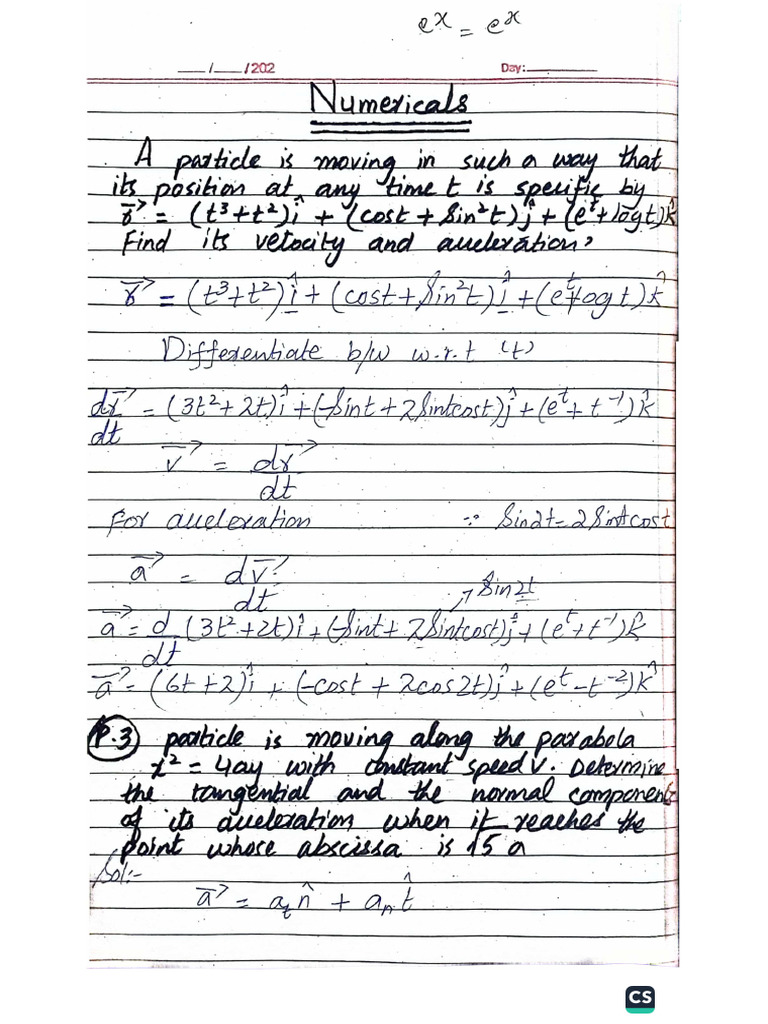 e^x = e^x
__/__/202 Day:______
Numericals
A particle is moving in such a way that
its position at any time t is specific by
r⃗ = (t³+t²)î + (cost + Sin²t)ĵ + (e^t+logt)k̂
Find its velocity and auceleration?
r⃗ = (t³+t²)î + (cost + Sin²t)ĵ + (e^t+logt)k̂
Differentiate b/w w.r.t (t)
dr⃗/dt = (3t²+2t)î + (-Sint + 2Sintcost)ĵ + (e^t + t⁻¹)k̂
v⃗ = dr⃗/dt
For auceleration ∵ Sin2t = 2Sintcost
a⃗ = dv⃗/dt
→ Sin2t
a⃗ = d/dt (3t²+2t)î + (-Sint + 2Sintcost)ĵ + (e^t + t⁻¹)k̂
a⃗ = (6t+2)î + (-cost + 2cos2t)ĵ + (e^t - t⁻²)k̂
P.3 particle is moving along the parabola
x² = 4ay with constant speed v. Determine
the tangential and the normal component
of its auceleration when it reaches the
point whose abscissa is √5 a
Sol:-
a⃗ = a_t n̂ + a_n t̂
CS